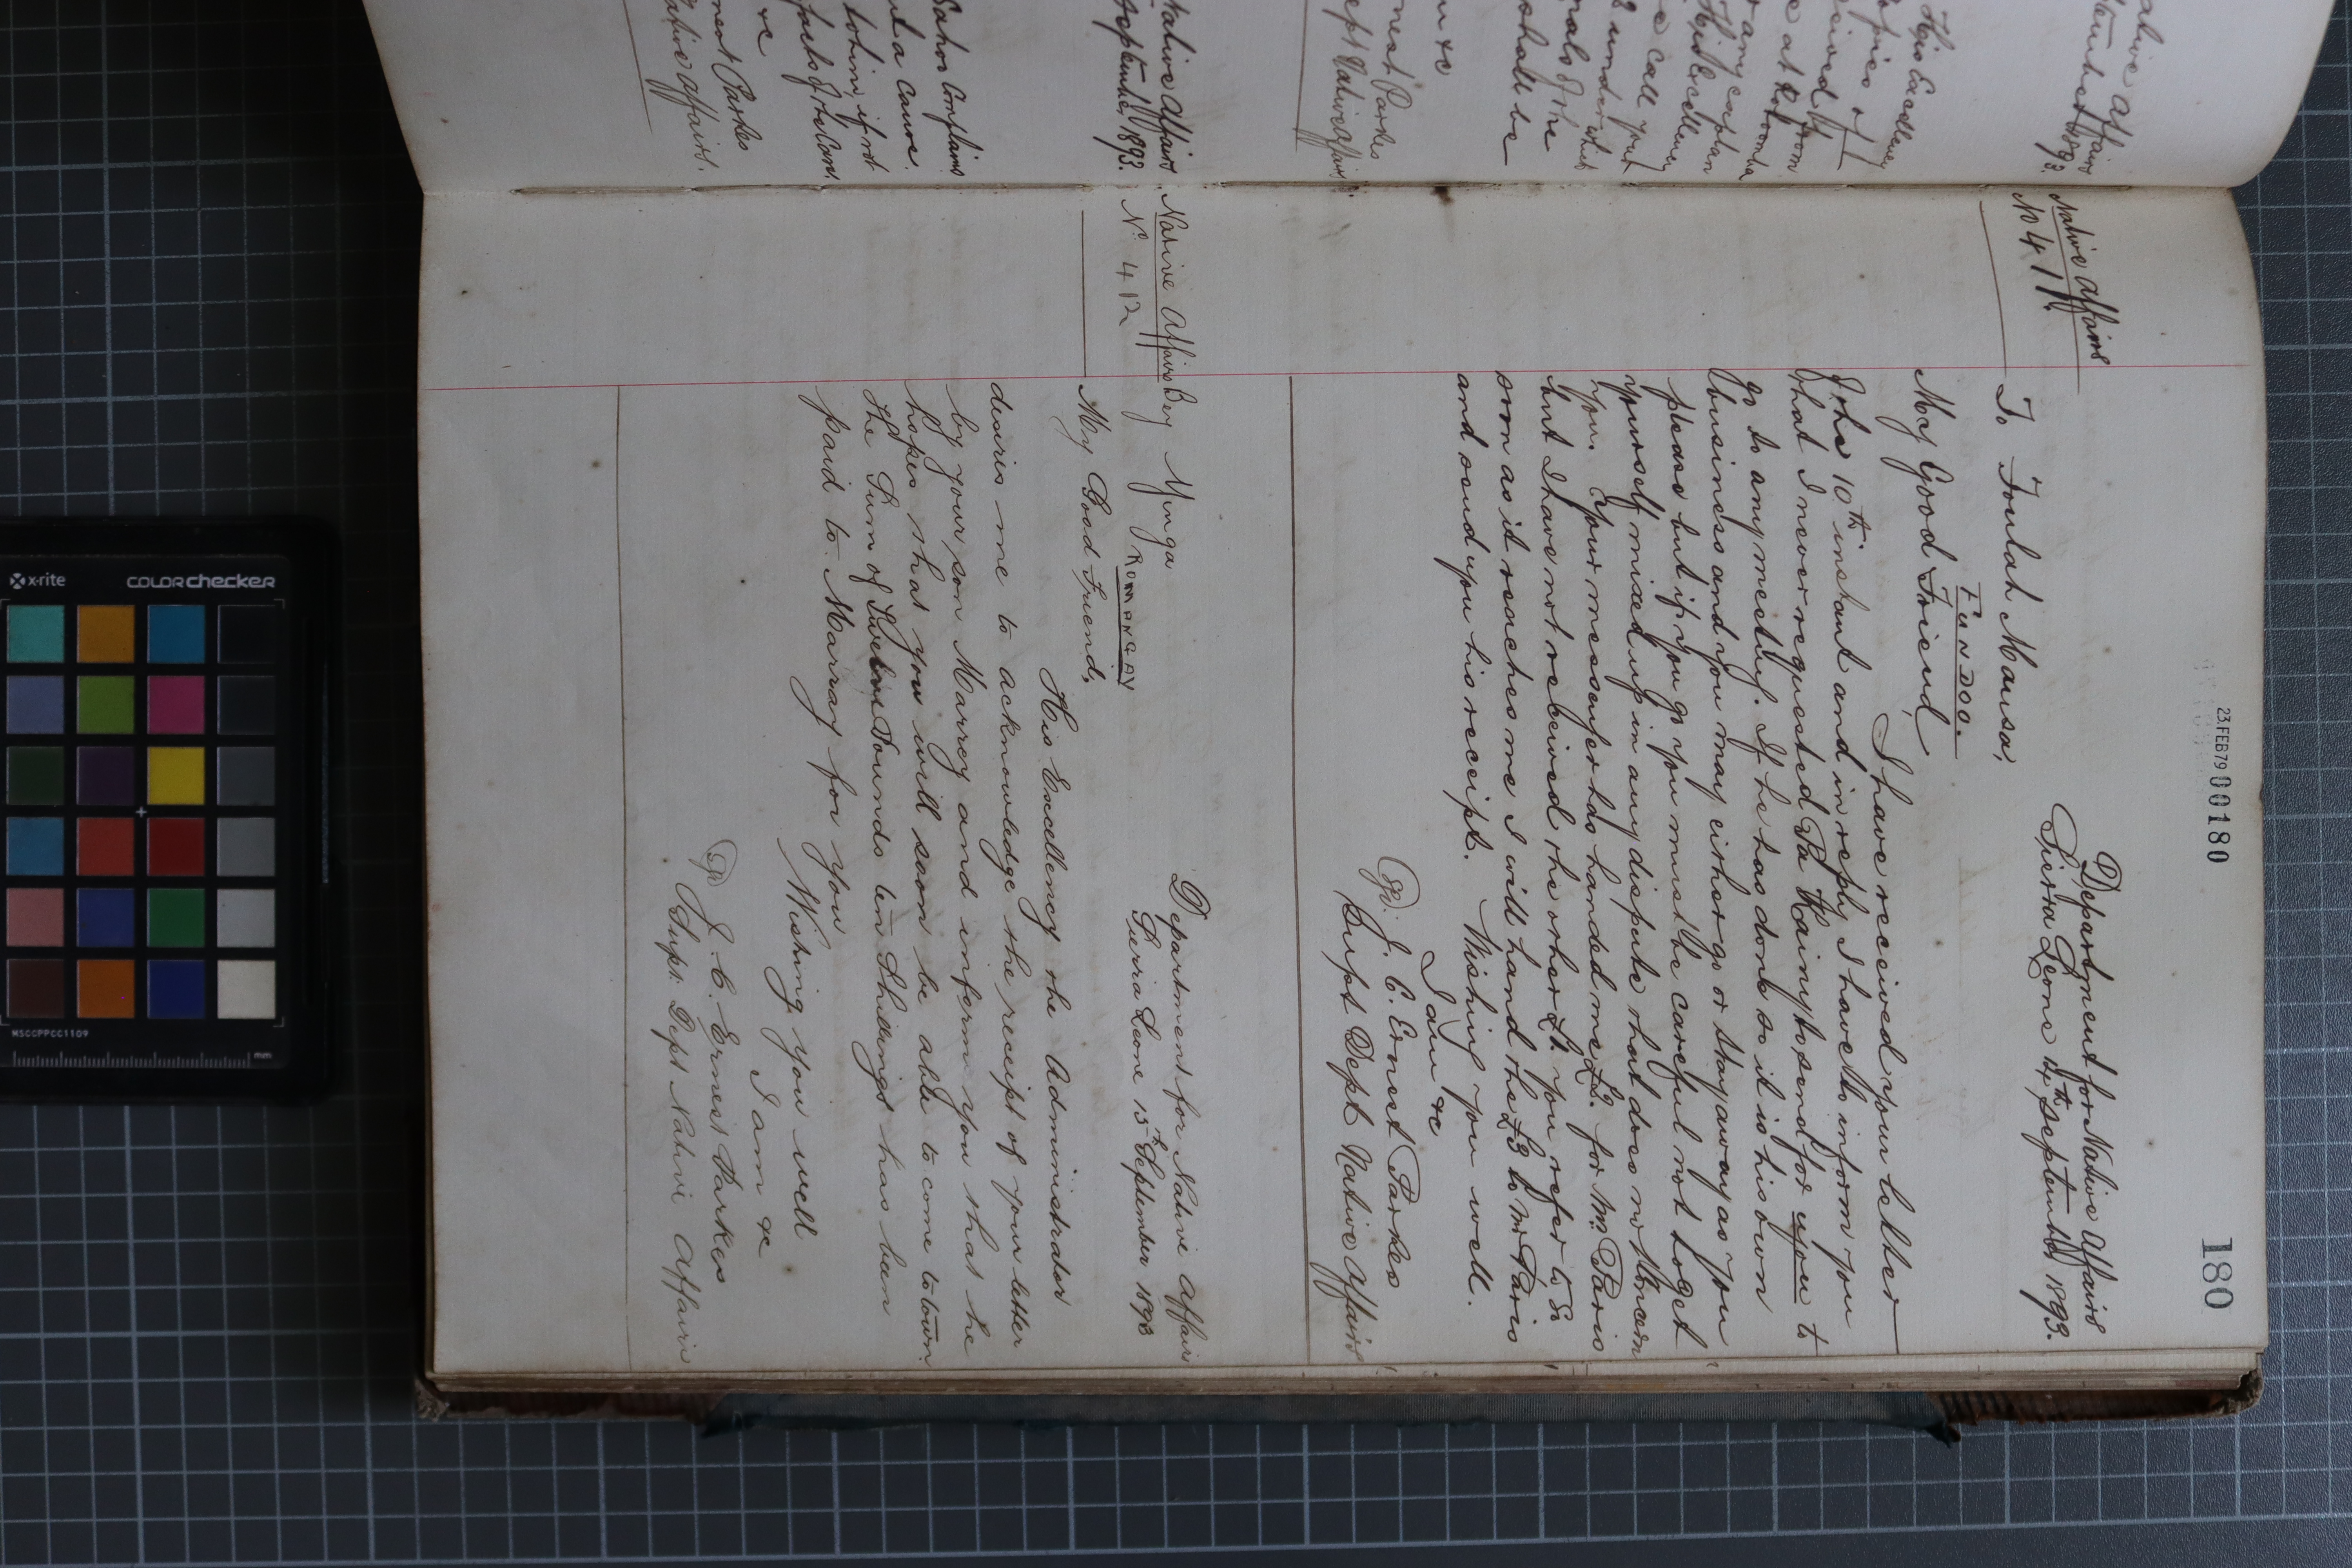 180
23 FEB 79 00180
Native Affairs
No 411.
Department for Native Affairs
Sierra Leone 14th September 1893.
To Foulah Mansa,
Fundoo.
My Good Friend,
I have received your letter
of the 10th instant and in reply I have to inform you
that I never requested Pa Kainy to send for you to
go to any meeting. If he has done so it is his own
business and you may either go or stay away as you
please but if you go you must be careful not to get
yourself mixed up in any dispute that does not concern
you. Your messenger has handed me £2. for Mr. Paris
but I have not received the other £1. you refer to so
soon as it reaches me I will hand the £3 to Mr Paris
and send you his receipt. Wishing you well.
I am &c
J. C. Ernest Parkes
Supt Dept Native Affairs
Native Affairs
No 412
Department for Native Affairs
Sierra Leone 15th September 1893
Bey Yinga
ROMANGAY
My Good Friend,
His Excellency the Administrator
desires me to acknowledge the receipt of your letter
by your son Marrey and informs you that he
hopes that you will soon be able to come to town.
The Sum of Pounds ten Shillings has been
paid to Marray for you
Wishing you well
I am &c
J. C. Ernest Parkes
Supt. Dept Native Affairs
Native Affairs
September 1893.
His Excellency
copies of
any captain
His Excellency
call your
shall be
Native Affairs
September 1893.
a cause
&c
Native Affairs.
x-rite
COLORchecker
MSCCPPCC1109
mm